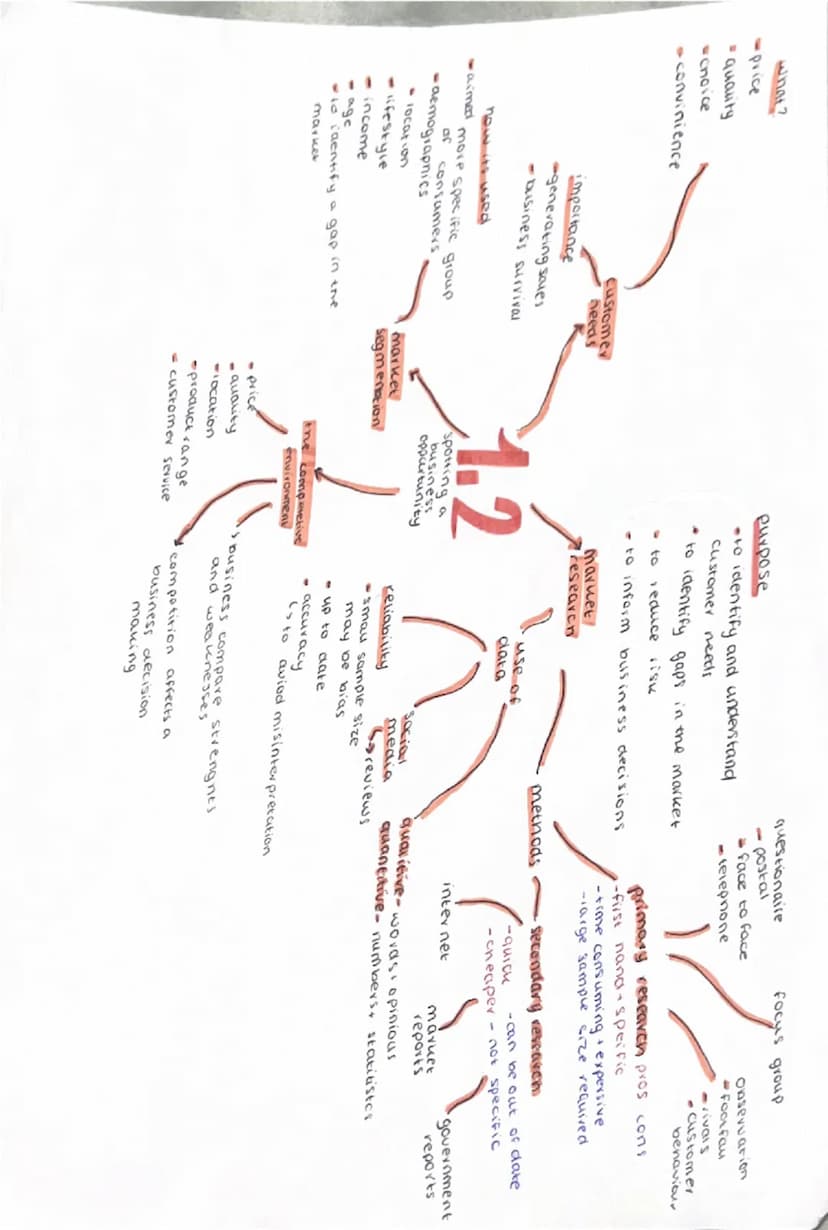 1.2
spotting a
business
opportunity
customer
needs
what?
- price
- quality
- choice
- convinience
importance
- generating sales
- business survival
market
segmentation
how its used
- aimed more specific group
of consumers
- demographics
- location
- lifestyle
- income
- age
- to identify a gap in the
market
the competitive
environment
- price
- quality
- location
- product range
- customer service
business compare strenghts
and weaknesses
competition affects a
business decision
making
market
research
purpose
- to identify and understand
customer needs
- to identify gaps in the market
- to reduce risk
- to inform business decisions
use of
data
reliability
- small sample size
may be bias
- up to date
- accuracy
↳ to aviod misinterpretation
social
media
↳ reviews
qualitive - words + opinious
quantitive - numbers + statistists
methods
primary research pros cons
- first hand + specific
- time consuming + expensive
- large sample size required
questionaire
- postal
- face to face
- telephone
focus group
observation
- footfall
- rivals
- customer
behaviour
secondary research
- quick - can be out of date
- cheaper - not specific
internet
market
reports
government
reports